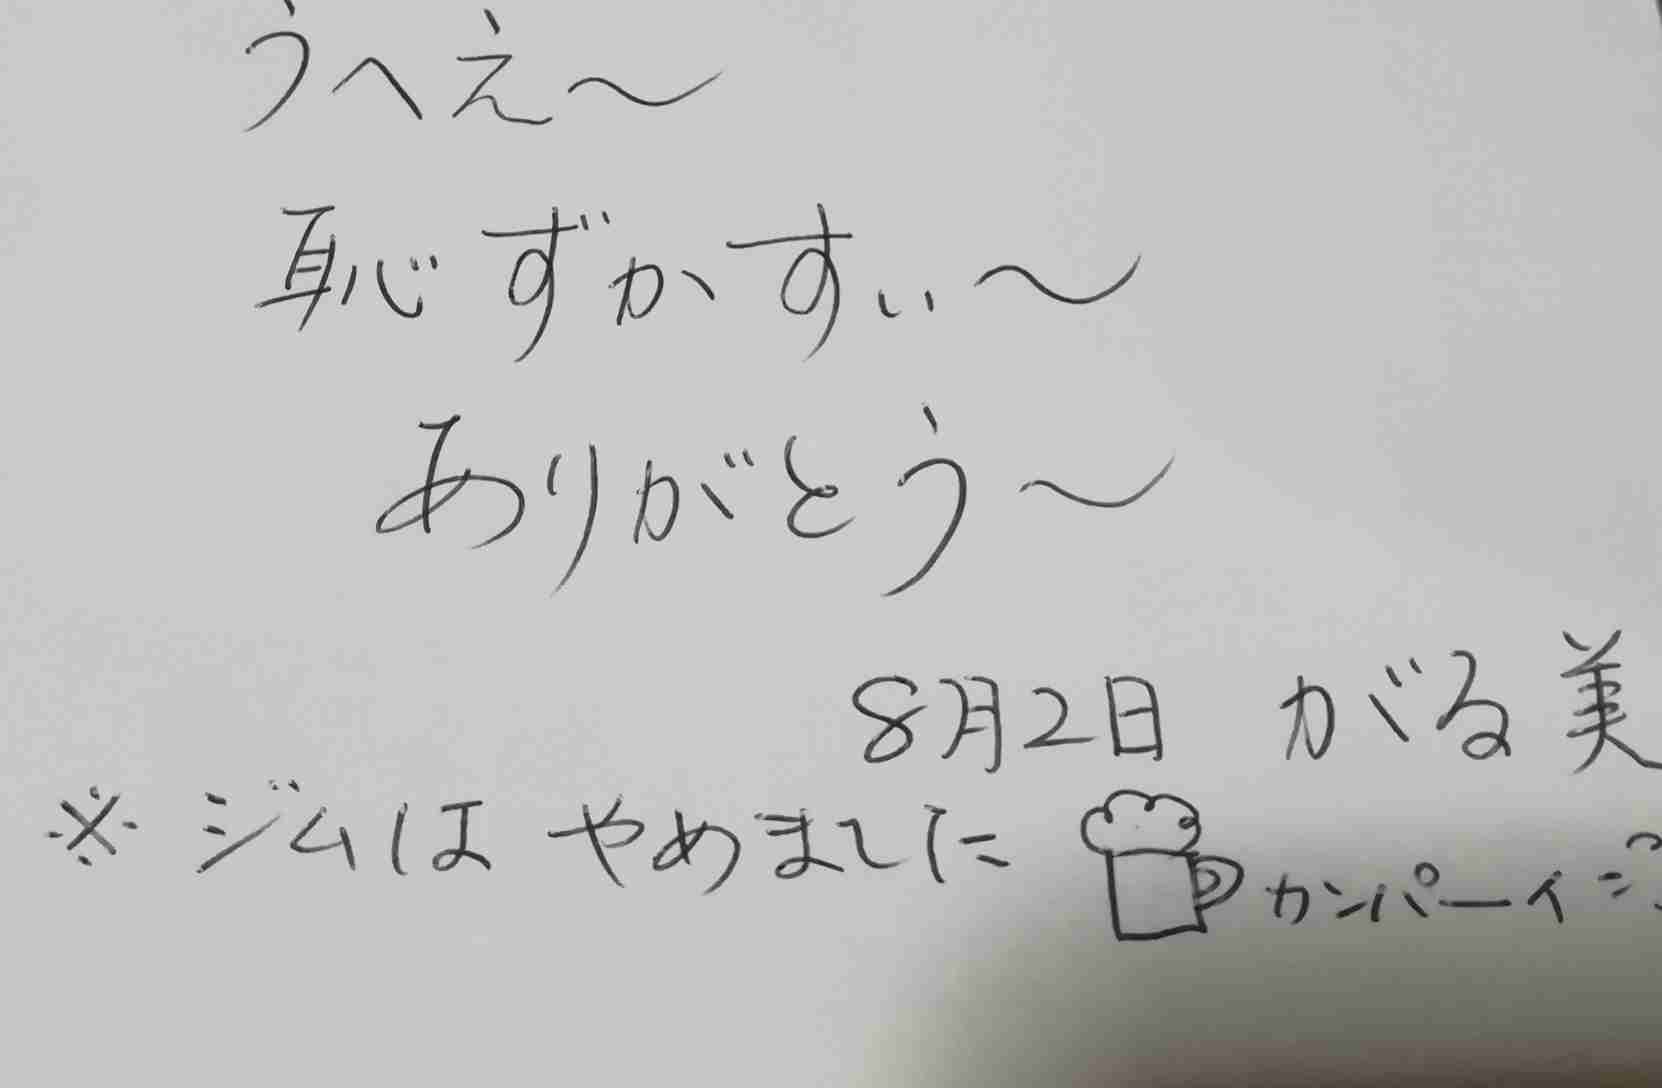 うへえ〜
恥ずかすぃ〜
ありがとう〜
8月2日 がる美
※ジムはやめました カンパーイ